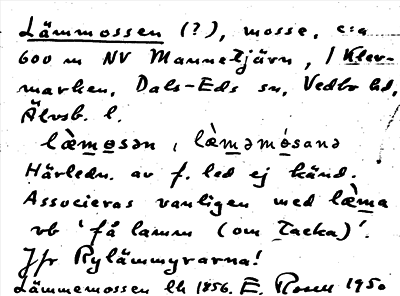 Lämmossen (?), mosse, c:a
600 m NV Mannetjärn, i Klev-
marken, Dals-Eds sn, Vedbo hd,
Älvsb. l.
lä̀mosən, lä̀məmósanə
Härledn. av f. led ej känd.
Associeras vanligen med lä̀ma
vb 'få lamm (om tacka)'.
Jfr Rylämmyrarna!
Lämmemossen lh 1856. E. Rosen 1950